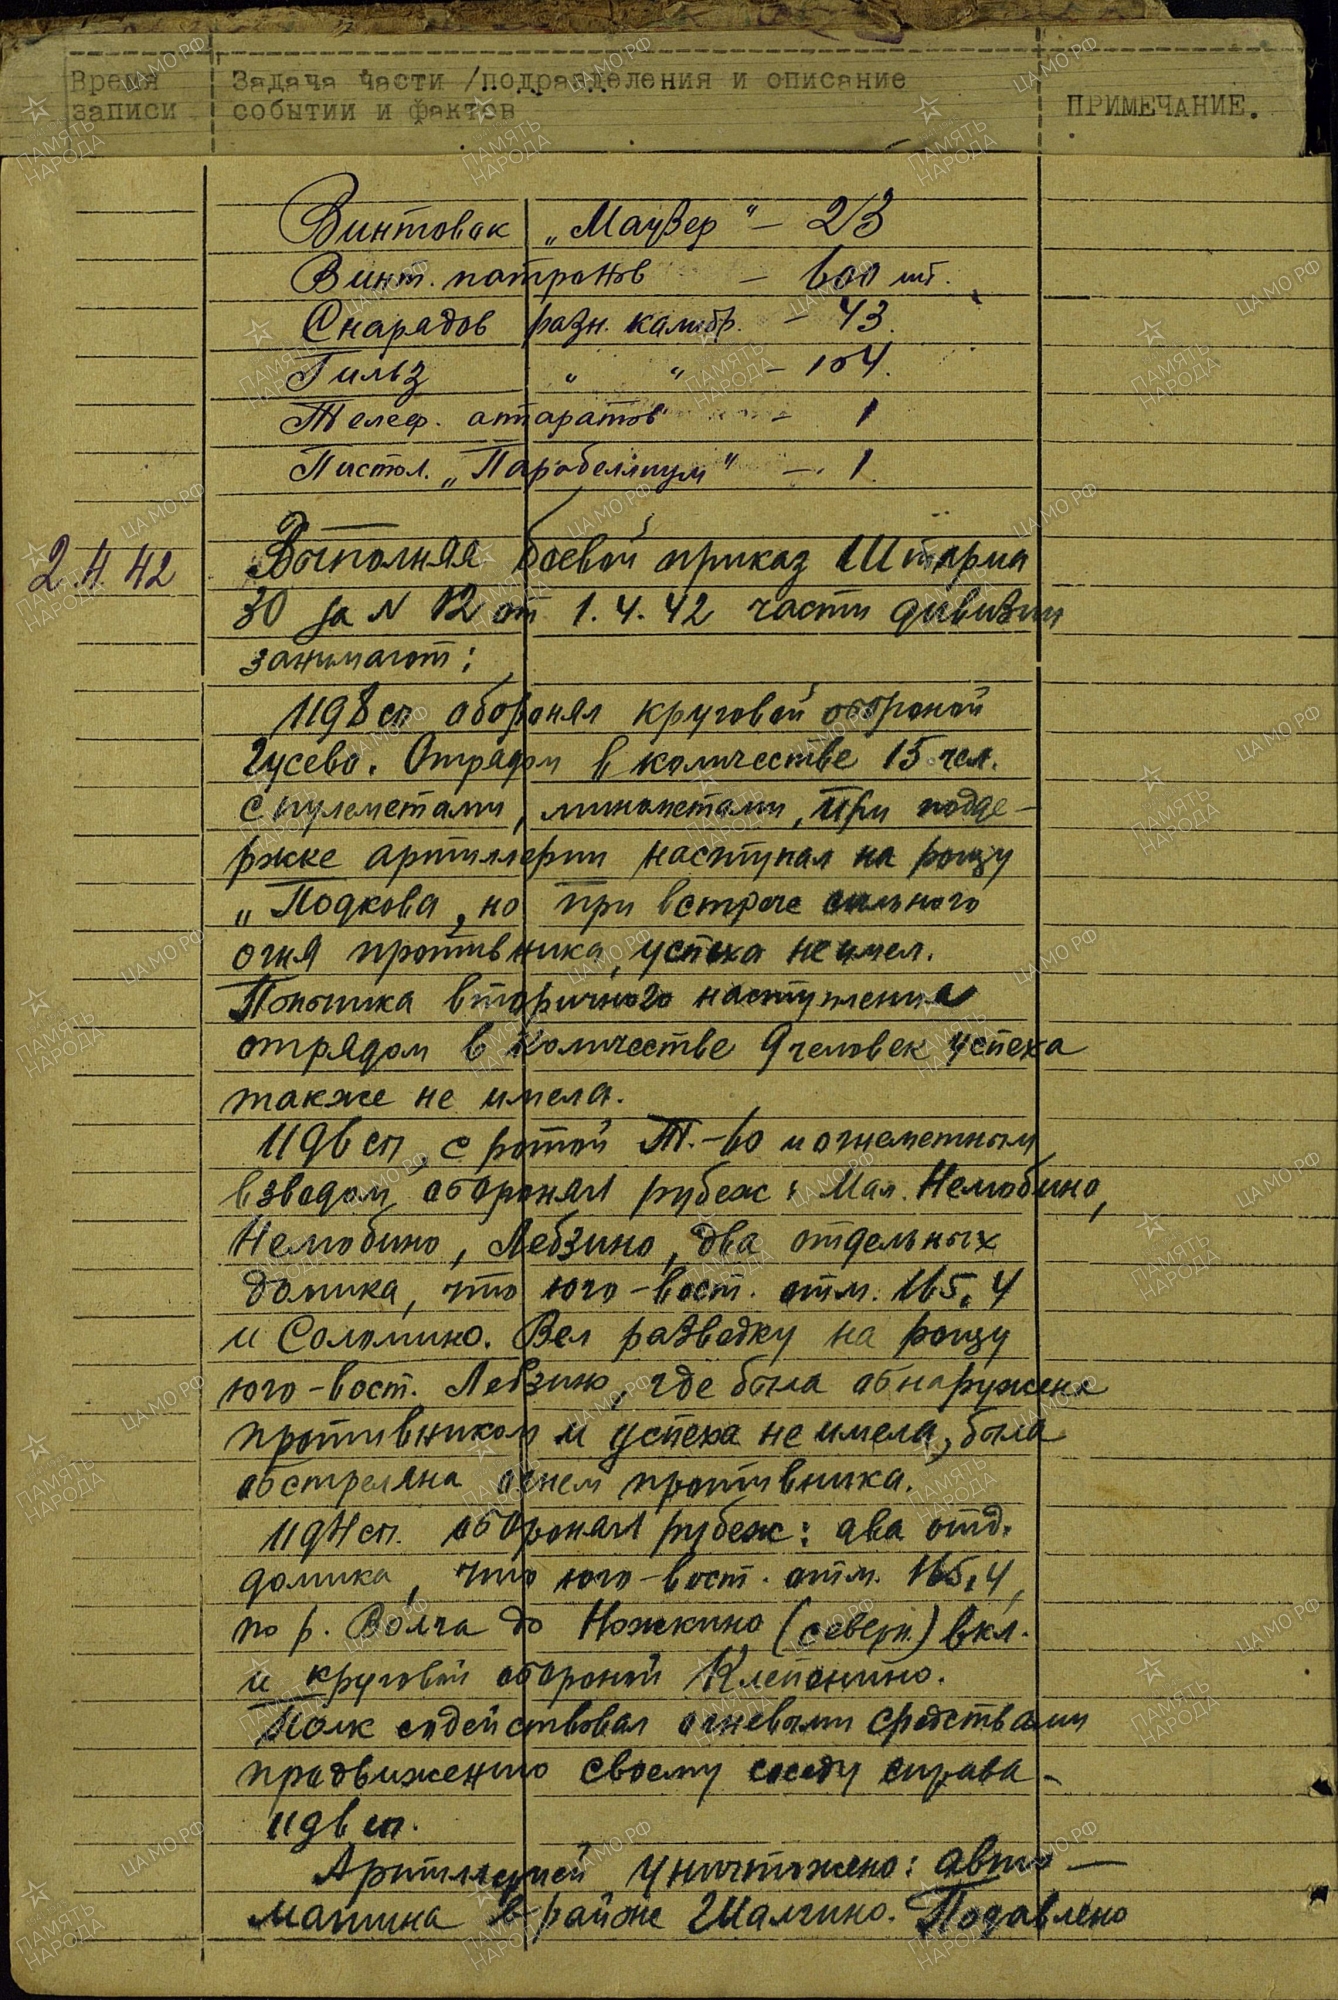 Время
записи
Задача части /подразделения и описание
событии и фактов
ПРИМЕЧАНИЕ.
Винтовок „Маузер" – 23
Винт. патронов – 600 шт.
Снарядов разн. калибр. – 43.
Гильз „ „ – 104.
Телеф. аппаратов – 1
Пистол. „Парабеллиум" – 1
2.4.42
Выполняя боевой приказ Штарма
30 за N 012 от 1.4.42 части дивизии
занимают:
1198 сп оборонял круговой обороной
Гусево. Отрядом в количестве 15 чел.
с пулеметами, минометами, при подде-
ржке артиллерии наступал на рощу
„Подкова, но при встрече сильного
огня противника, успеха не имел.
Попытка вторичного наступления
отрядом в количестве 9 человек успеха
также не имела.
1196 сп, с ротой ПТ.-во и огнеметным
взводом оборонял рубеж: Мал. Нелюбино,
Нелюбино, Лебзино, два отдельных
домика, что юго-вост. отм. 165,4
и Соломино. Вел разведку на рощу
юго-вост. Лебзино, где была обнаружена
противником и успеха не имела, была
обстреляна огнем противника.
1194 сп. оборонял рубеж: два отд.
домика, что юго-вост. отм. 165,4,
по р. Волга до Ножкино (северн.) вкл.
и круговой обороной Клепенино.
Полк содействовал огневыми средствами
продвижению своему соседу справа –
1196 сп.
Артиллерией уничтожено: авто –
машина в районе Шалгино. Подавлено
ПАМЯТЬ
НАРОДА
ЦАМО.РФ